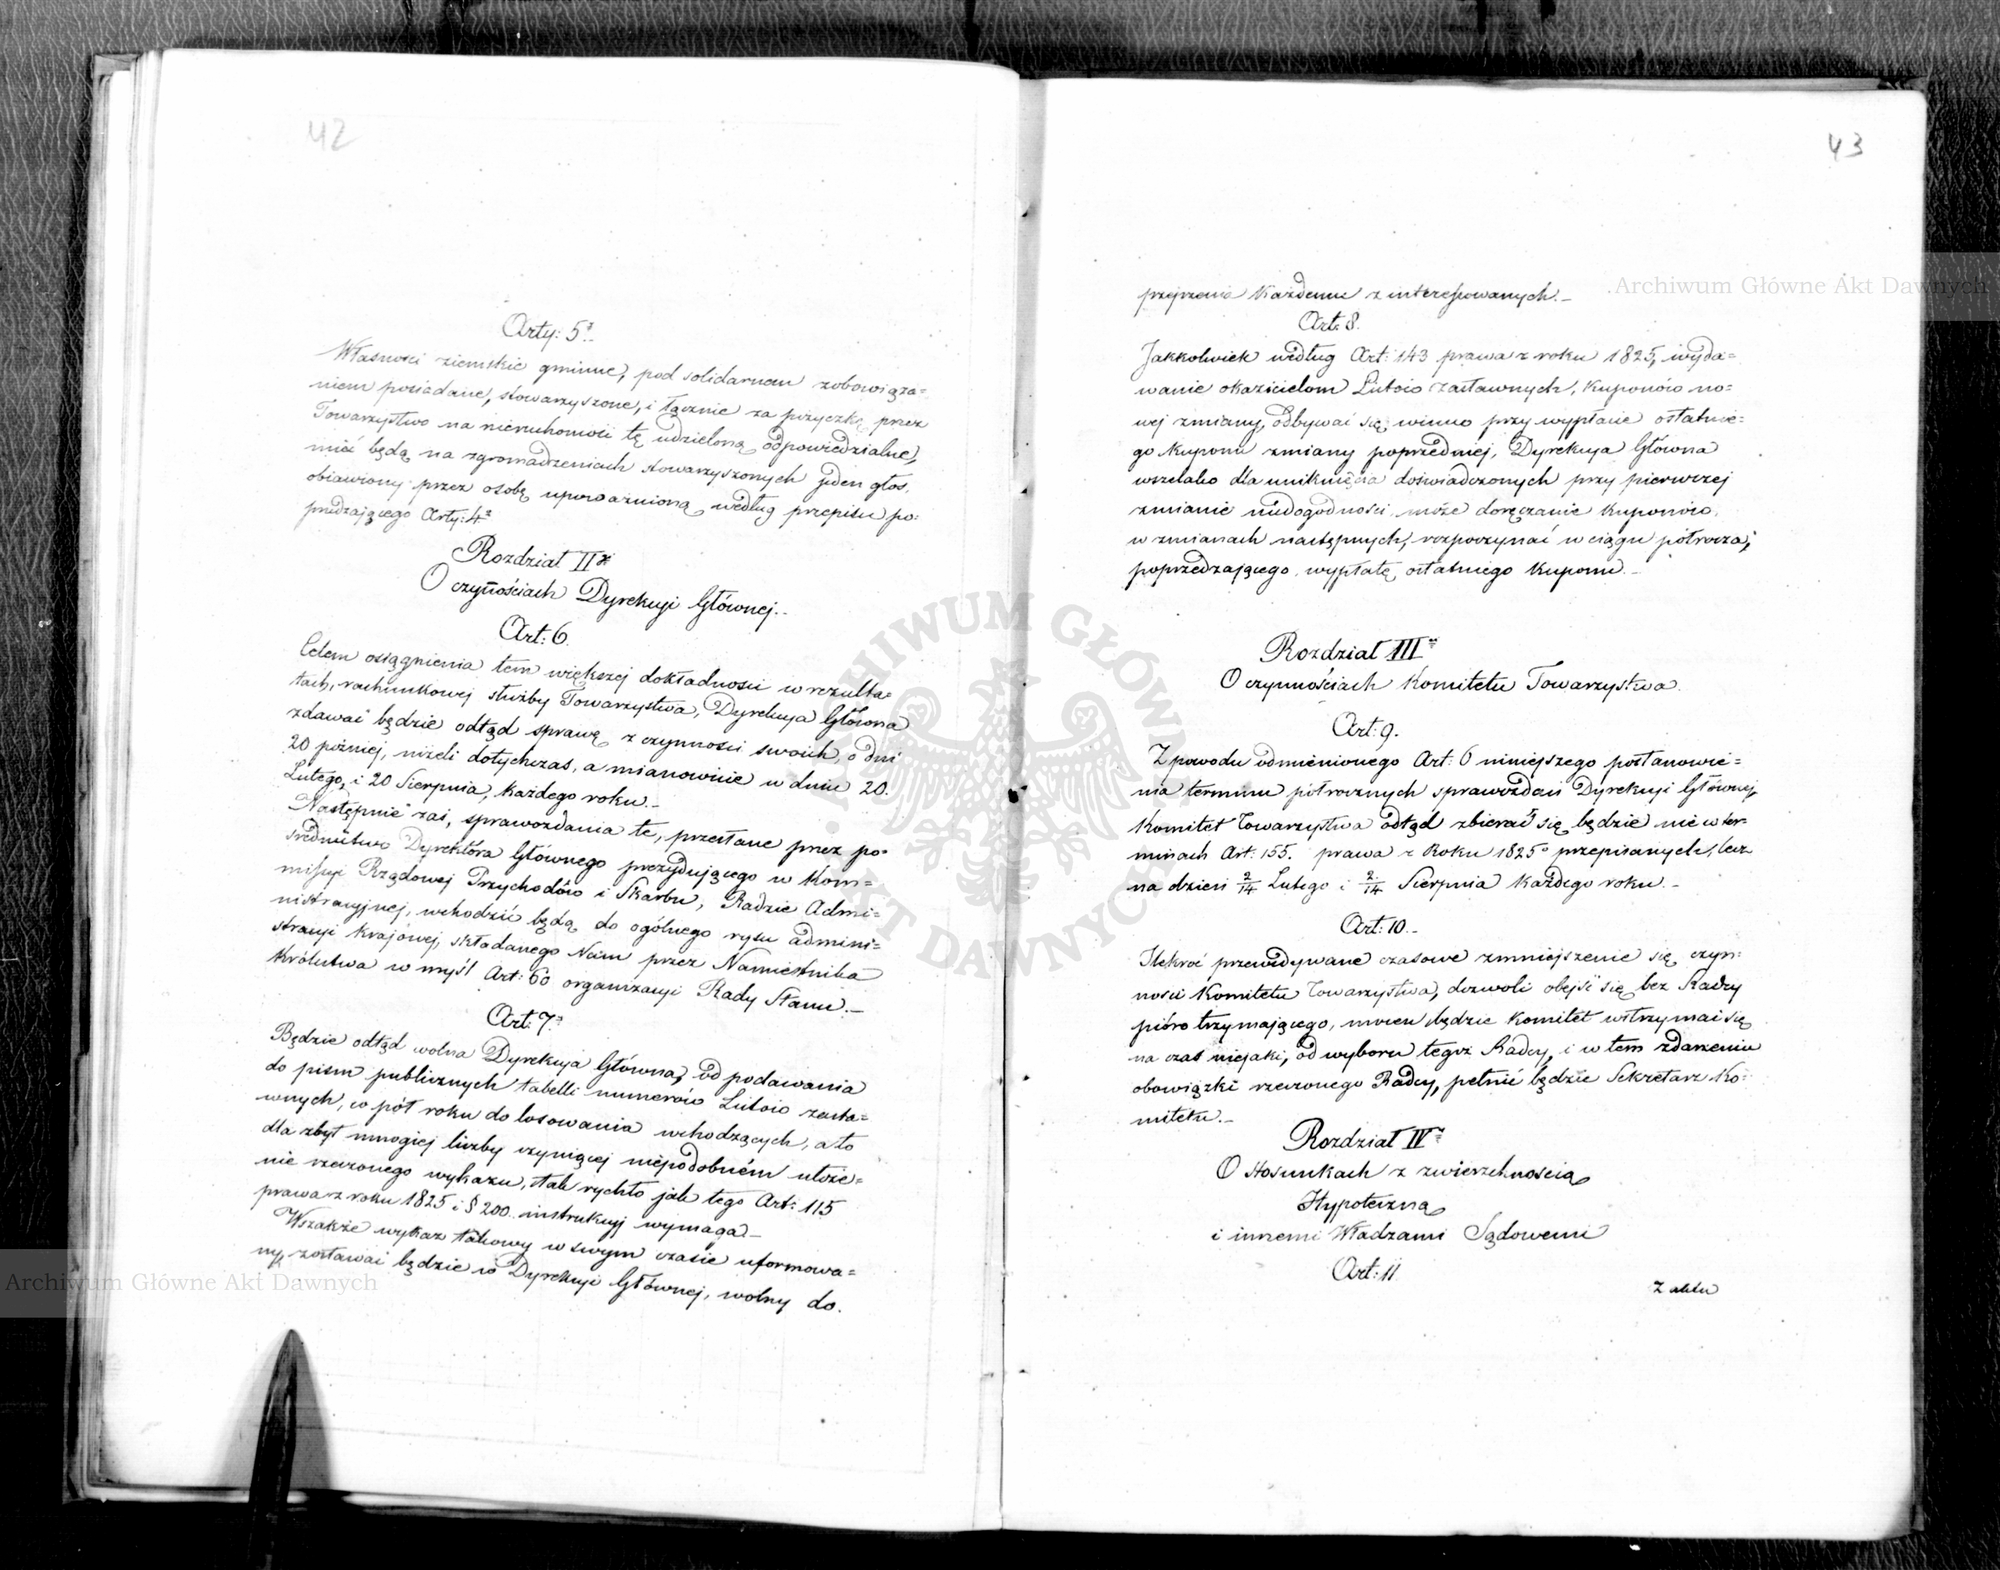 42
Arty: 5ª
Własności ziemskie gminne, pod solidarnem zobowiąza=
niem posiadane, stowarzyszone, i łącznie za pożyczkę przez
Towarzystwo na nieruchomości tę udzieloną odpowiedzialne,
mieć będą na zgromadzeniach stowarzyszonych jeden głos,
obiawiony przez osobę upoważnioną według przepisu po:
przedzającego Arty: 4ª
Rozdział II
O czynościach Dyrekcyi Głównej.-
Art: 6.
Celem osiągnienia tem większej dokładności w rezulta=
tach, rachunkowej służby Towarzystwa, Dyrekcya Główna
zdawać będzie odtąd sprawę z czynności swoich, o dni
20 później, niżeli dotychczas, a mianowicie w dniu 20.
Lutego, i 20 Sierpnia, każdego roku.-
Następnie zaś, sprawozdania te, przesłane przez po=
srednictwo Dyrektora Głównego prezydującego w Kom=
missyi Rządowej Przychodów i Skarbu, Radzie Admi=
nistracyjnej, wchodzić będą do ogólnego rysu admini=
stracyi Krajowej, składanego Nam przez Namiestnika
Królestwa w myśl Art: 60 organizacyi Rady Stanu.-
Art: 7ª
Będzie odtąd wolna Dyrekcya Główna, od podawania
do pism publicznych tabelli numerów Listów zasta=
wnych, co pół roku do losowania wchodzących, a to
dla zbyt mnogiej liczby czyniącej niepodobném ułoże=
nie rzeczonego wykazu, tak rychło jak tego Art: 115
prawa z roku 1825 i § 200. instrukcyj wymaga.-
Wszakże wykaz takowy w swym czasie uformowa=
ny, zostawać będzie w Dyrekcyi Głównej, wolny do.
43
przejrzenia każdemu z interessowanych.-
Art: 8.
Jakkolwiek według Art: 143 prawa z roku 1825, wyda=
wanie okazicielom Listów zastawnych, Kuponów no=
wej zmiany, odbywać się winno przy wypłacie ostatnie=
go Kuponu zmiany poprzedniej, Dyrekcya Główna
wszelako dla uniknięcia doświadczonych przy pierwszej
zmianie niedogodności, może doręczanie Kuponów,
w zmianach następnych, rozpoczynać w ciągu półrocza,
poprzedzającego, wypłatę ostatniego Kuponu.-
Rozdział III
O czynnościach Komitetu Towarzystwa.
Art: 9.
Z powodu odmienionego Art: 6 niniejszego postanowie=
nia terminu półrocznych sprawozdań Dyrekcyi Głównej,
Komitet Towarzystwa odtąd zbierać się będzie nie w ter=
minach Art: 155. prawa z Roku 1825º przepisanych, lecz
na dzień 2/14 Lutego i 2/14 Sierpnia każdego roku.-
Art: 10.-
Ilekroć przewidywane czasowe zmniejszenie się czyn=
ności Komitetu Towarzystwa, dozwoli obejść się bez Radzy
pióro trzymającego, mocen będzie Komitet wstrzymać się
na czas niejaki, od wyboru tegoż Radcy, i w tem zdarzeniu
obowiązki rzeczonego Radcy, pełnić będzie Sekretarz Ko=
mitetu.-
Rozdział IV
O stosunkach z zwierzchnością
Hypoteczną
i innemi Władzami Sądowemi
Art: 11.
Z aktu
Archiwum Główne Akt Dawnych
Archiwum Główne Akt Dawnych
ARCHIWUM GŁÓWNE AKT DAWNYCH